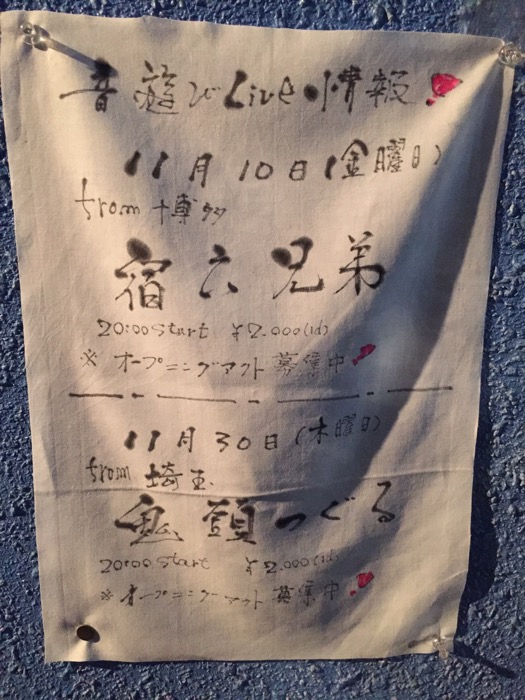 音遊びLive情報
11月10日(金曜日)
from 博多
宿六兄弟
20:00 Start ¥2.000(1d)
※ オープニングアクト募集中
11月30日(木曜日)
from 埼玉
鬼頭つぐる
20:00 Start ¥2.000(1d)
※ オープニングアクト募集中